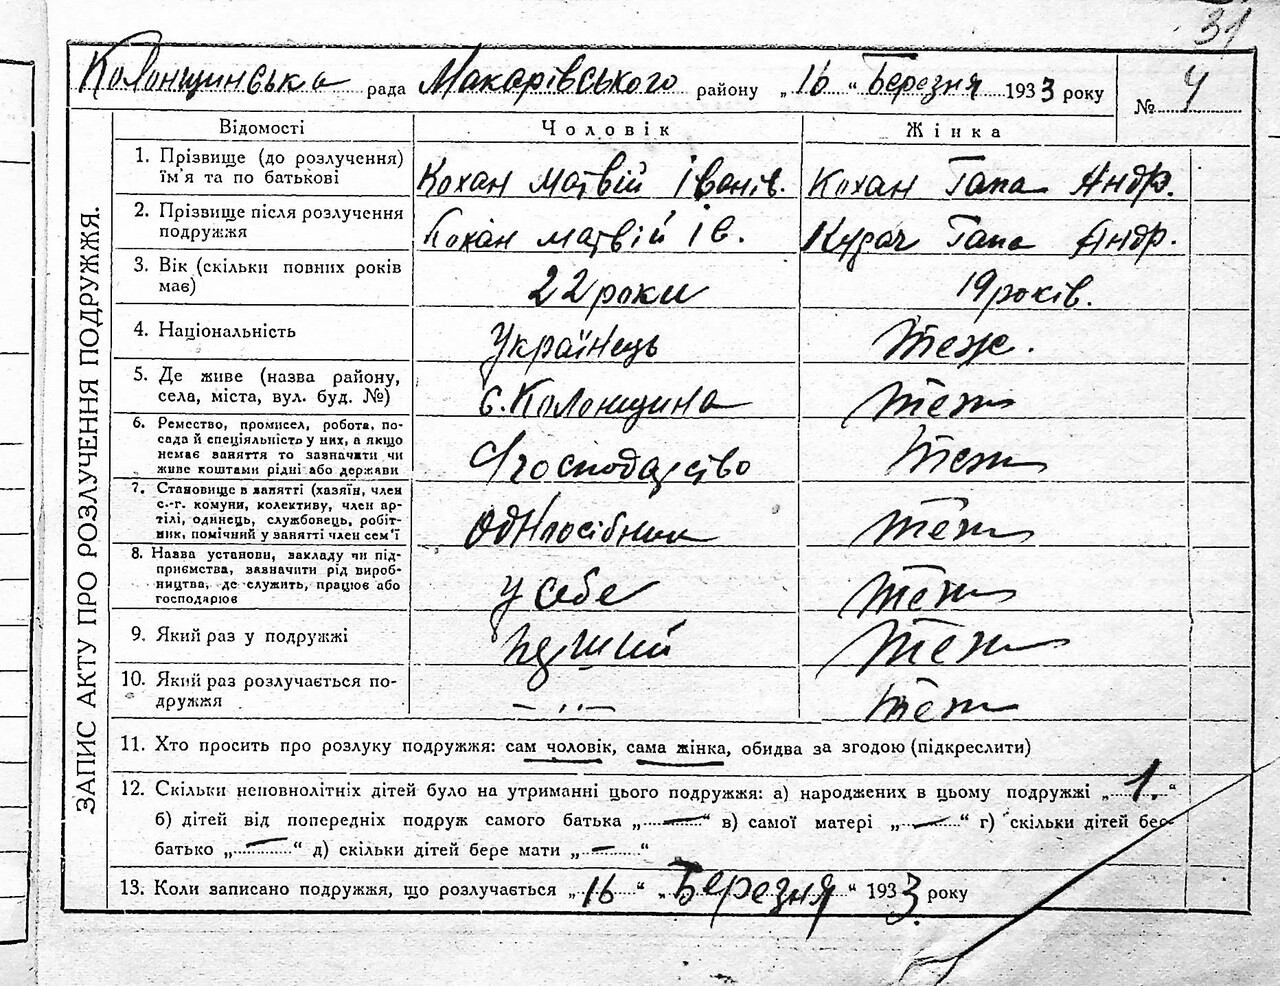 31
Колонщинська рада Макарівського району „16“ Березня 1933 року
№ 4
ЗАПИС АКТУ ПРО РОЗЛУЧЕННЯ ПОДРУЖЖЯ.
Відомості Чоловік Жінка
1. Прізвище (до розлучення) ім'я та по батькові Кохан Матвій Іванів. Кохан Гапа Андр.
2. Прізвище після розлучення подружжя Кохан Матвій Ів. Гапа Андр.
3. Вік (скільки повних років має) 22 роки 19 років.
4. Національність Українець Теж.
5. Де живе (назва району, села, міста, вул. буд. №) с. Колонщина Теж
6. Ремество, промисел, робота, по-
сада й спеціяльність у них, а якщо
немає заняття то зазначити чи
живе коштами рідні або держави господарство Теж
7. Становище в занятті (хазяїн, член
с.-г. комуни, колективу, член ар-
тілі, одинець, службовець, робіт-
ник, помічний у занятті член сем'ї Одноосібник Теж
8. Назва установи, закладу чи під-
приємства, зазначити рід вироб-
ництва, де служить, працює або
господарює У себе Теж
9. Який раз у подружжі Перший Теж
10. Який раз розлучається по-
дружжя — „ — Теж
11. Хто просить про розлуку подружжя: сам чоловік, сама жінка, обидва за згодою (підкреслити)
12. Скільки неповнолітніх дітей було на утриманні цього подружжя: а) народжених в цьому подружжі „1.“
б) дітей від попередніх подруж самого батька „—“ в) самої матері „—“ г) скільки дітей бере
батько „—“ д) скільки дітей бере мати „—“
13. Коли записано подружжя, що розлучається „16“ „Березня“ 1933 року